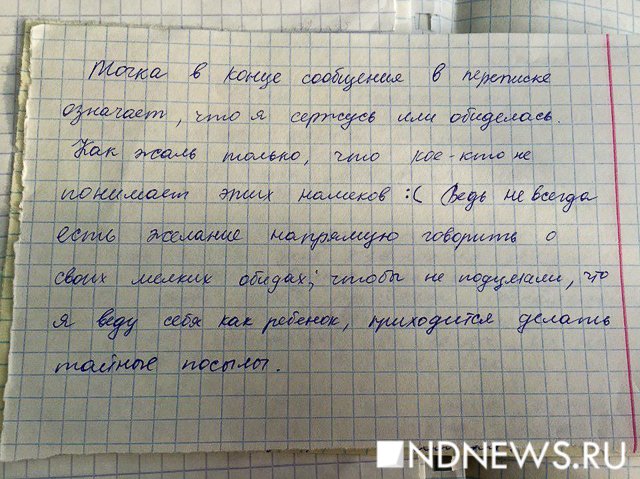 Точка в конце сообщения в переписке
означает, что я сержусь или обиделась.
Как жаль только, что кое-кто не
понимает этих намеков :( Ведь не всегда
есть желание напрямую говорить о
своих мелких обидах; чтобы не подумали, что
я веду себя как ребенок, приходится делать
тайные посылы.
NDNEWS.RU